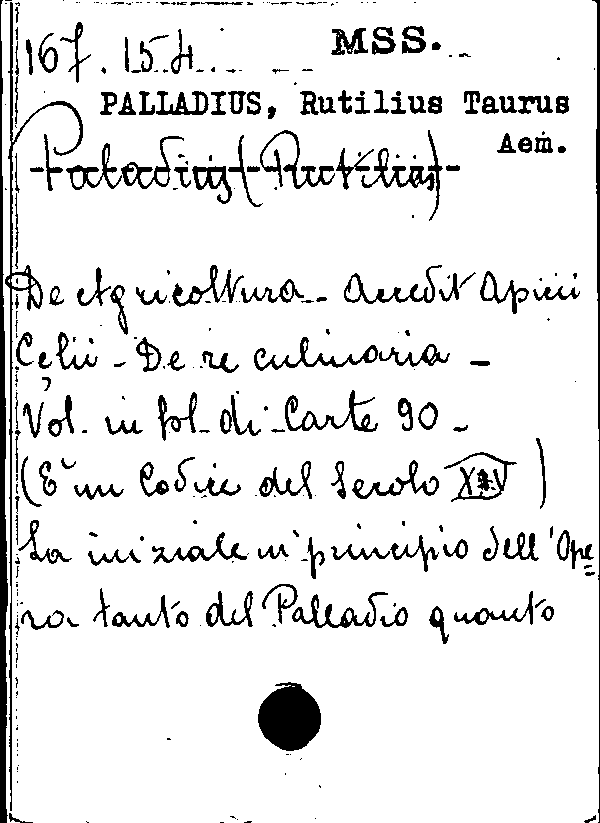 167.154. MSS.
PALLADIUS, Rutilius Taurus
Aem.
Paladius (Rutilius)
De Agricoltura - Accedit Apicii
Cęlii - De re culinaria -
Vol. in fol. di Carte 90 -
(È un Codice del Secolo XV)
La iniziale in principio dell'Ope
ra tanto del Palladio quanto